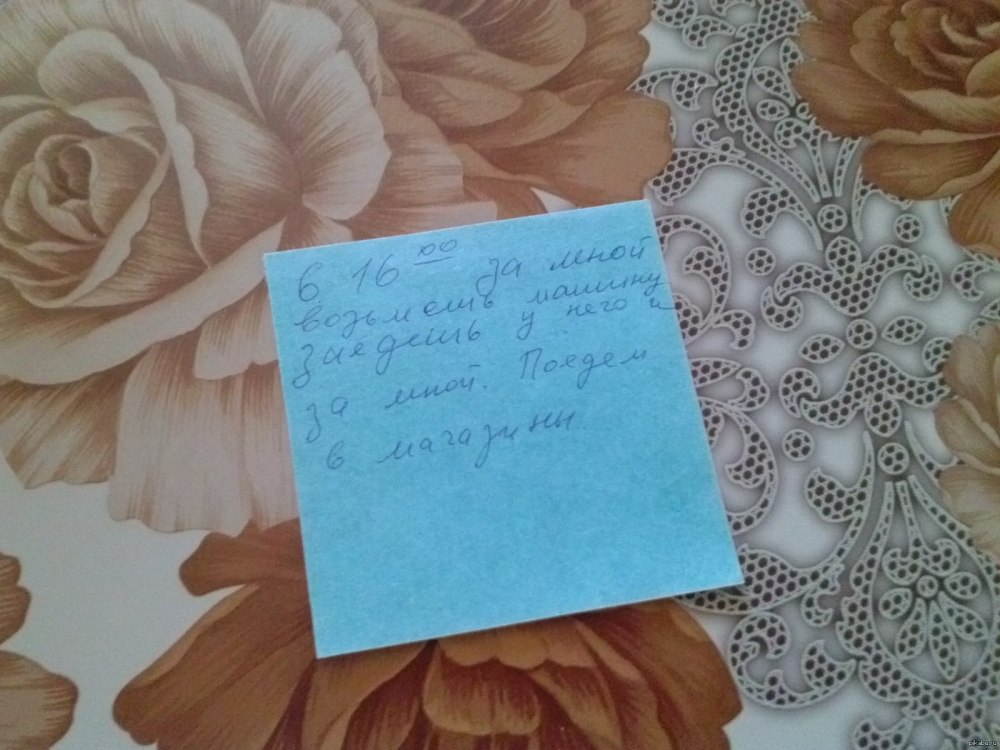 в 16 00 за мной
возьмешь машину
заедешь у него и
за мной. Поедем
в магазины
pikabu.ru